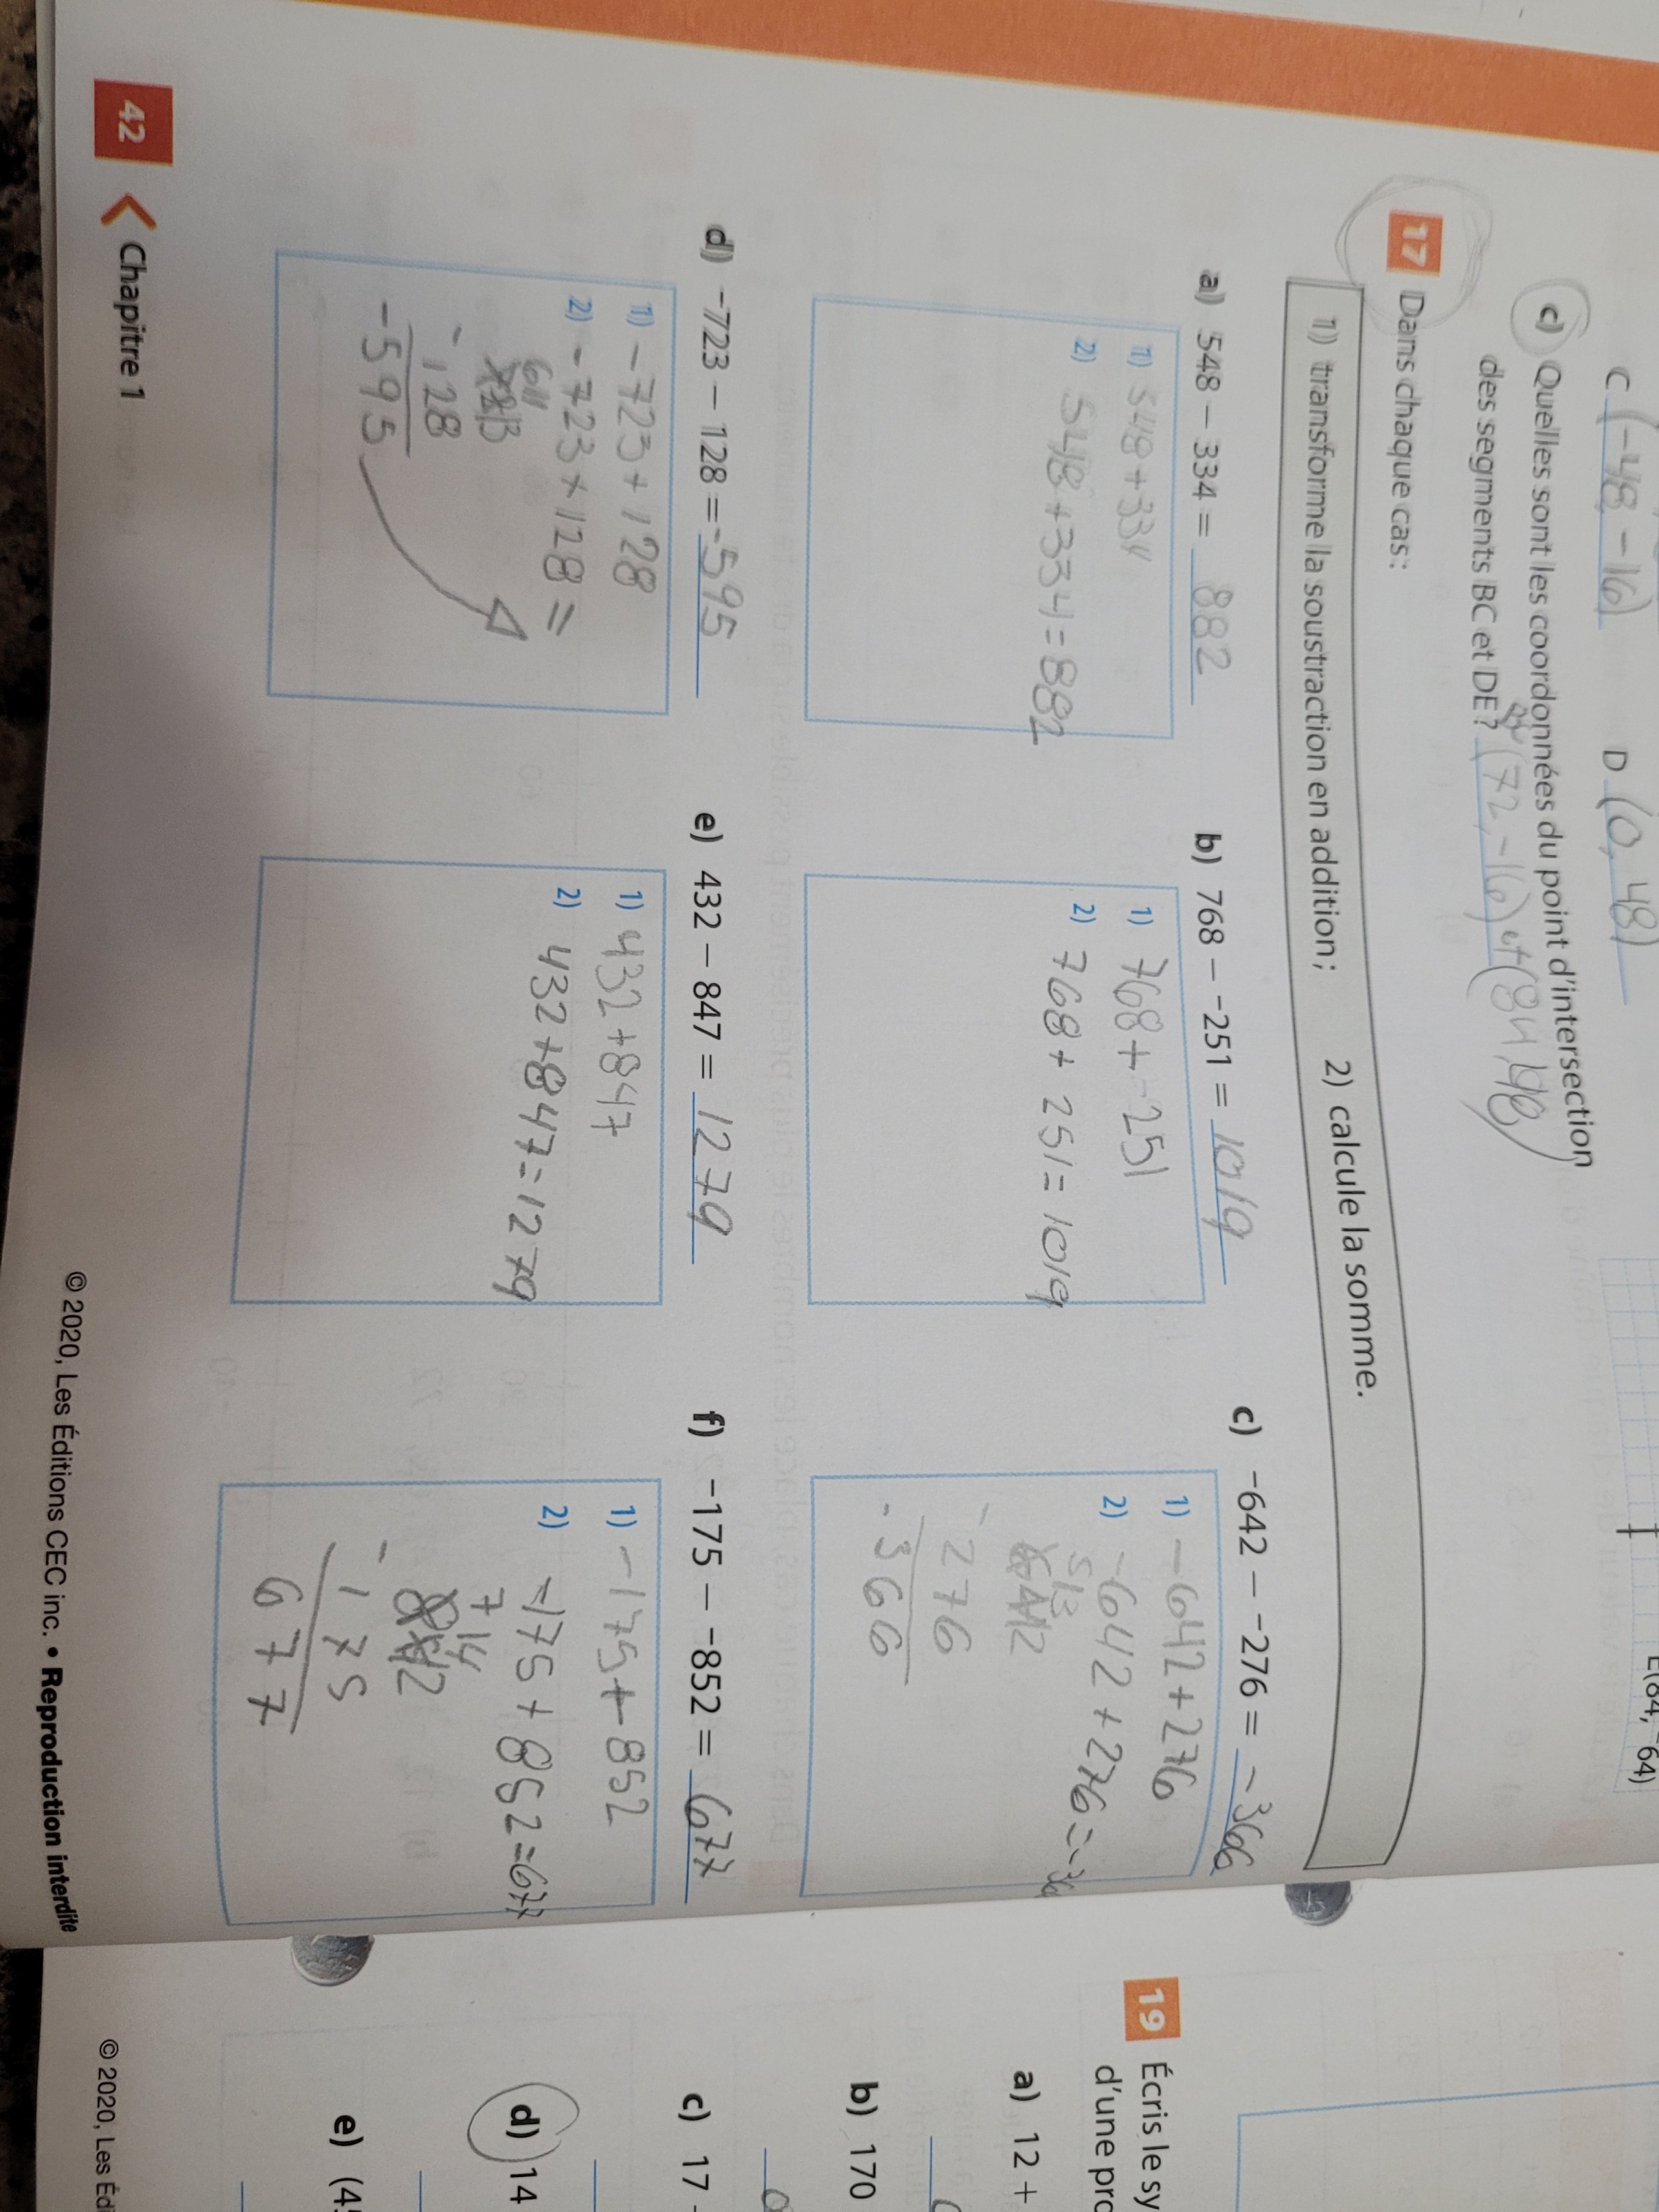 C (-48, -16) D (0, 48)
c) Quelles sont les coordonnées du point d'intersection
des segments BC et DE? (72, -16) et (84, 48)
17 Dans chaque cas :
1) transforme la soustraction en addition; 2) calcule la somme.
a) 548 – 334 = 882
1) 548 + 334
2) 548 + 334 = 882
b) 768 – -251 = 1019
1) 768 + 251
2) 768 + 251 = 1019
c) -642 – -276 = -366
1) -642 + 276
2) -642 + 276 = -36
5 13
6412
- 276
-366
d) -723 – 128 = -595
1) -723 + 128
2) -723 + 128 =
611
- 128
-595
e) 432 – 847 = 1279
1) 432 + 847
2) 432 + 847 = 1279
f) -175 – -852 = 677
1) -175 + 852
2) -175 + 852 = 677
7 14
- 175
677
42 < Chapitre 1
© 2020, Les Éditions CEC inc. • Reproduction interdite
64)
19 Écris le sy
d'une pro
a) 12 +
b) 170
c) 17 -
d) 14
e) (4
© 2020, Les Éd